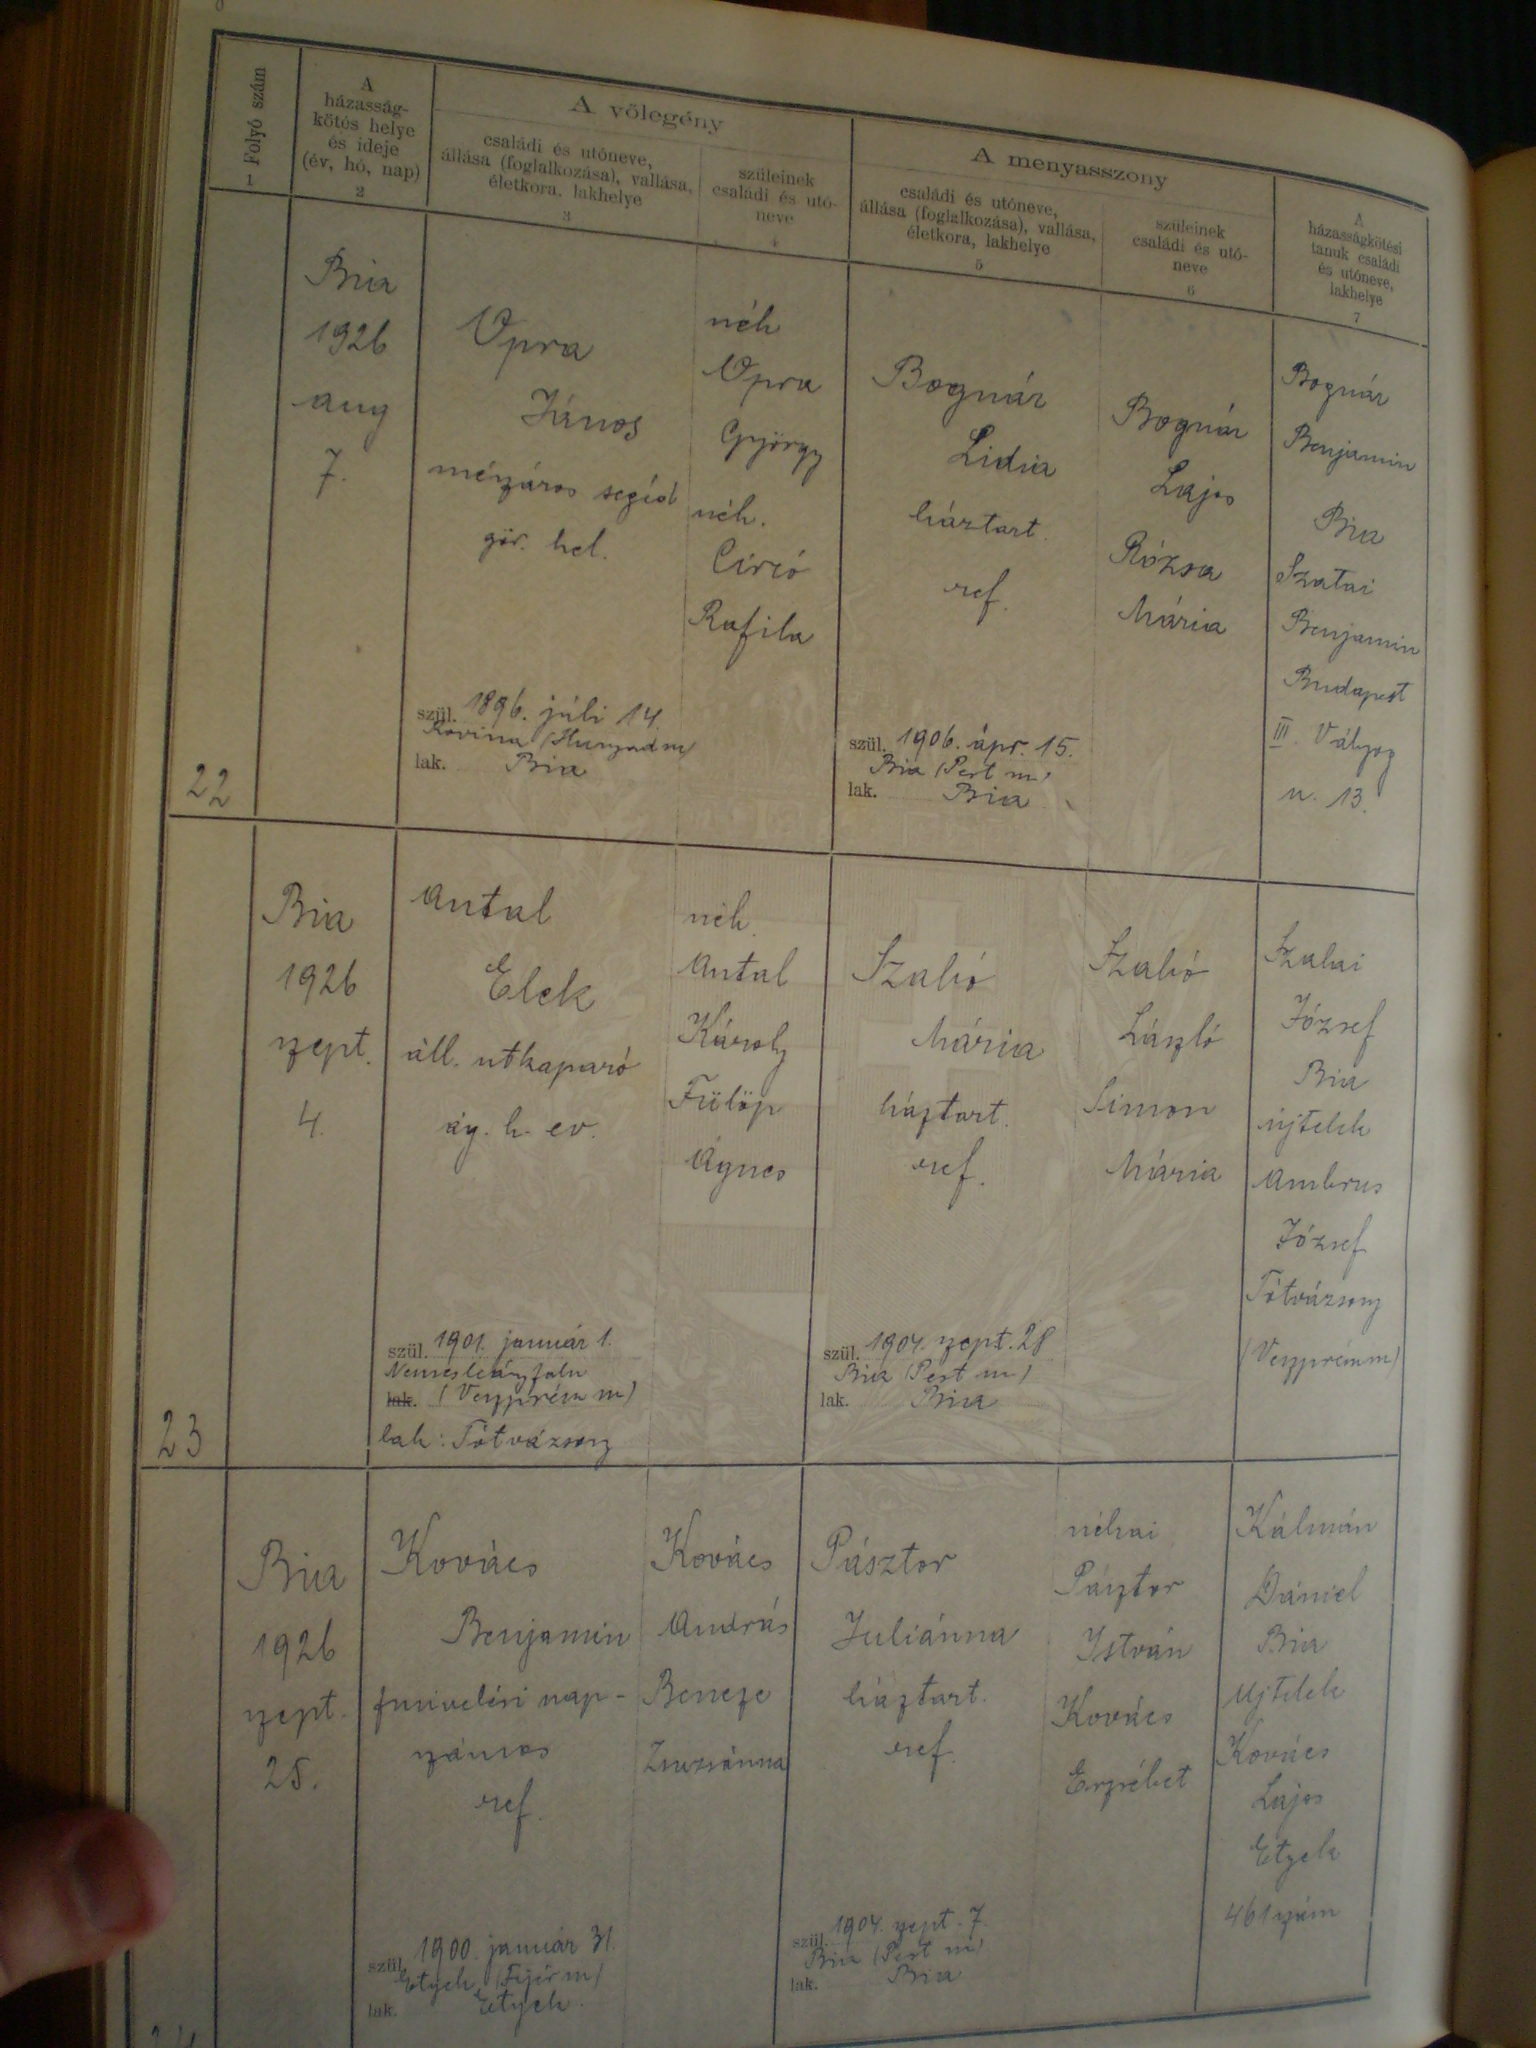 Folyó szám
1
A
házasság-
kötés helye
és ideje
(év, hó, nap)
2
A völegény
családi és utóneve,
állása (foglalkozása), vallása,
életkora, lakhelye
3
szüleinek
családi és utó-
neve
4
A menyasszony
családi és utóneve,
állása (foglalkozása), vallása,
életkora, lakhelye
5
szüleinek
családi és utó-
neve
6
A
házasságkötési
tanuk családi
és utóneve,
lakhelye
7
22
Bia
1926
aug
7.
Opra
János
mészáros segéd
gör. kel.
szül. 1896. júli 14.
(Hunyad m)
lak. Bia
néh
Opra
György
néh.
Rafila
Bognár
Lidia
háztart.
ref.
szül. 1906. ápr. 15.
Bia (Pest m)
lak. Bia
Bognár
Lajos
Rózsa
Mária
Bognár
Benjamin
Bia
Szatai
Benjamin
Budapest
III. Vályog
u. 13.
23
Bia
1926
szept.
4.
Antal
Elek
áll. utkaparó
ág. h. ev.
szül. 1901. január 1.
Nemesleányfalu
lak. (Veszprém m)
lak: Tótvázsony
néh.
Antal
Károly
Fülöp
Ágnes
Szabó
Mária
háztart.
ref.
szül. 1904. szept. 28
Bia (Pest m)
lak. Bia
Szabó
László
Simon
Mária
Szalai
József
Bia
újtelek
Ambrus
József
Tótvázsony
(Veszprém m)
Bia
1926
szept.
25.
Kovács
Benjamin
földmivelési nap-
számos
ref.
szül. 1900. január 31.
Etyek (Fejér m)
lak. Etyek.
Kovács
András
Bencze
Zsuzsánna
Pásztor
Juliánna
háztart.
ref.
szül. 1904. szept. 7.
Bia (Pest m)
lak. Bia
néhai
Pásztor
István
Kovács
Erzsébet
Kálmán
Dániel
Bia
Ujtelek
Kovács
Lajos
Etyek
461 szám